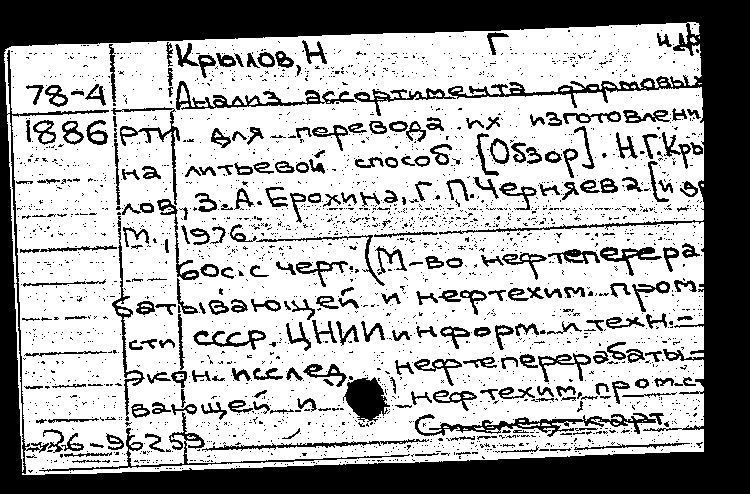 Крылов, Н Г и др
78-4 Анализ ассортимента формовых
1886 рти для перевода их изготовлени
на литьевой способ. [Обзор]. Н.Г. Кры
лов, З.А. Ерохина, Г.П. Черняева [и др
М., 1976.
60с. с черт. (М-во нефтеперера-
батывающей и нефтехим. пром-
сти СССР. ЦНИИ информ. и техн.-
экон. исслед. нефтеперерабаты-
вающей и нефтехим. пром-ст
См след карт.
26-96259